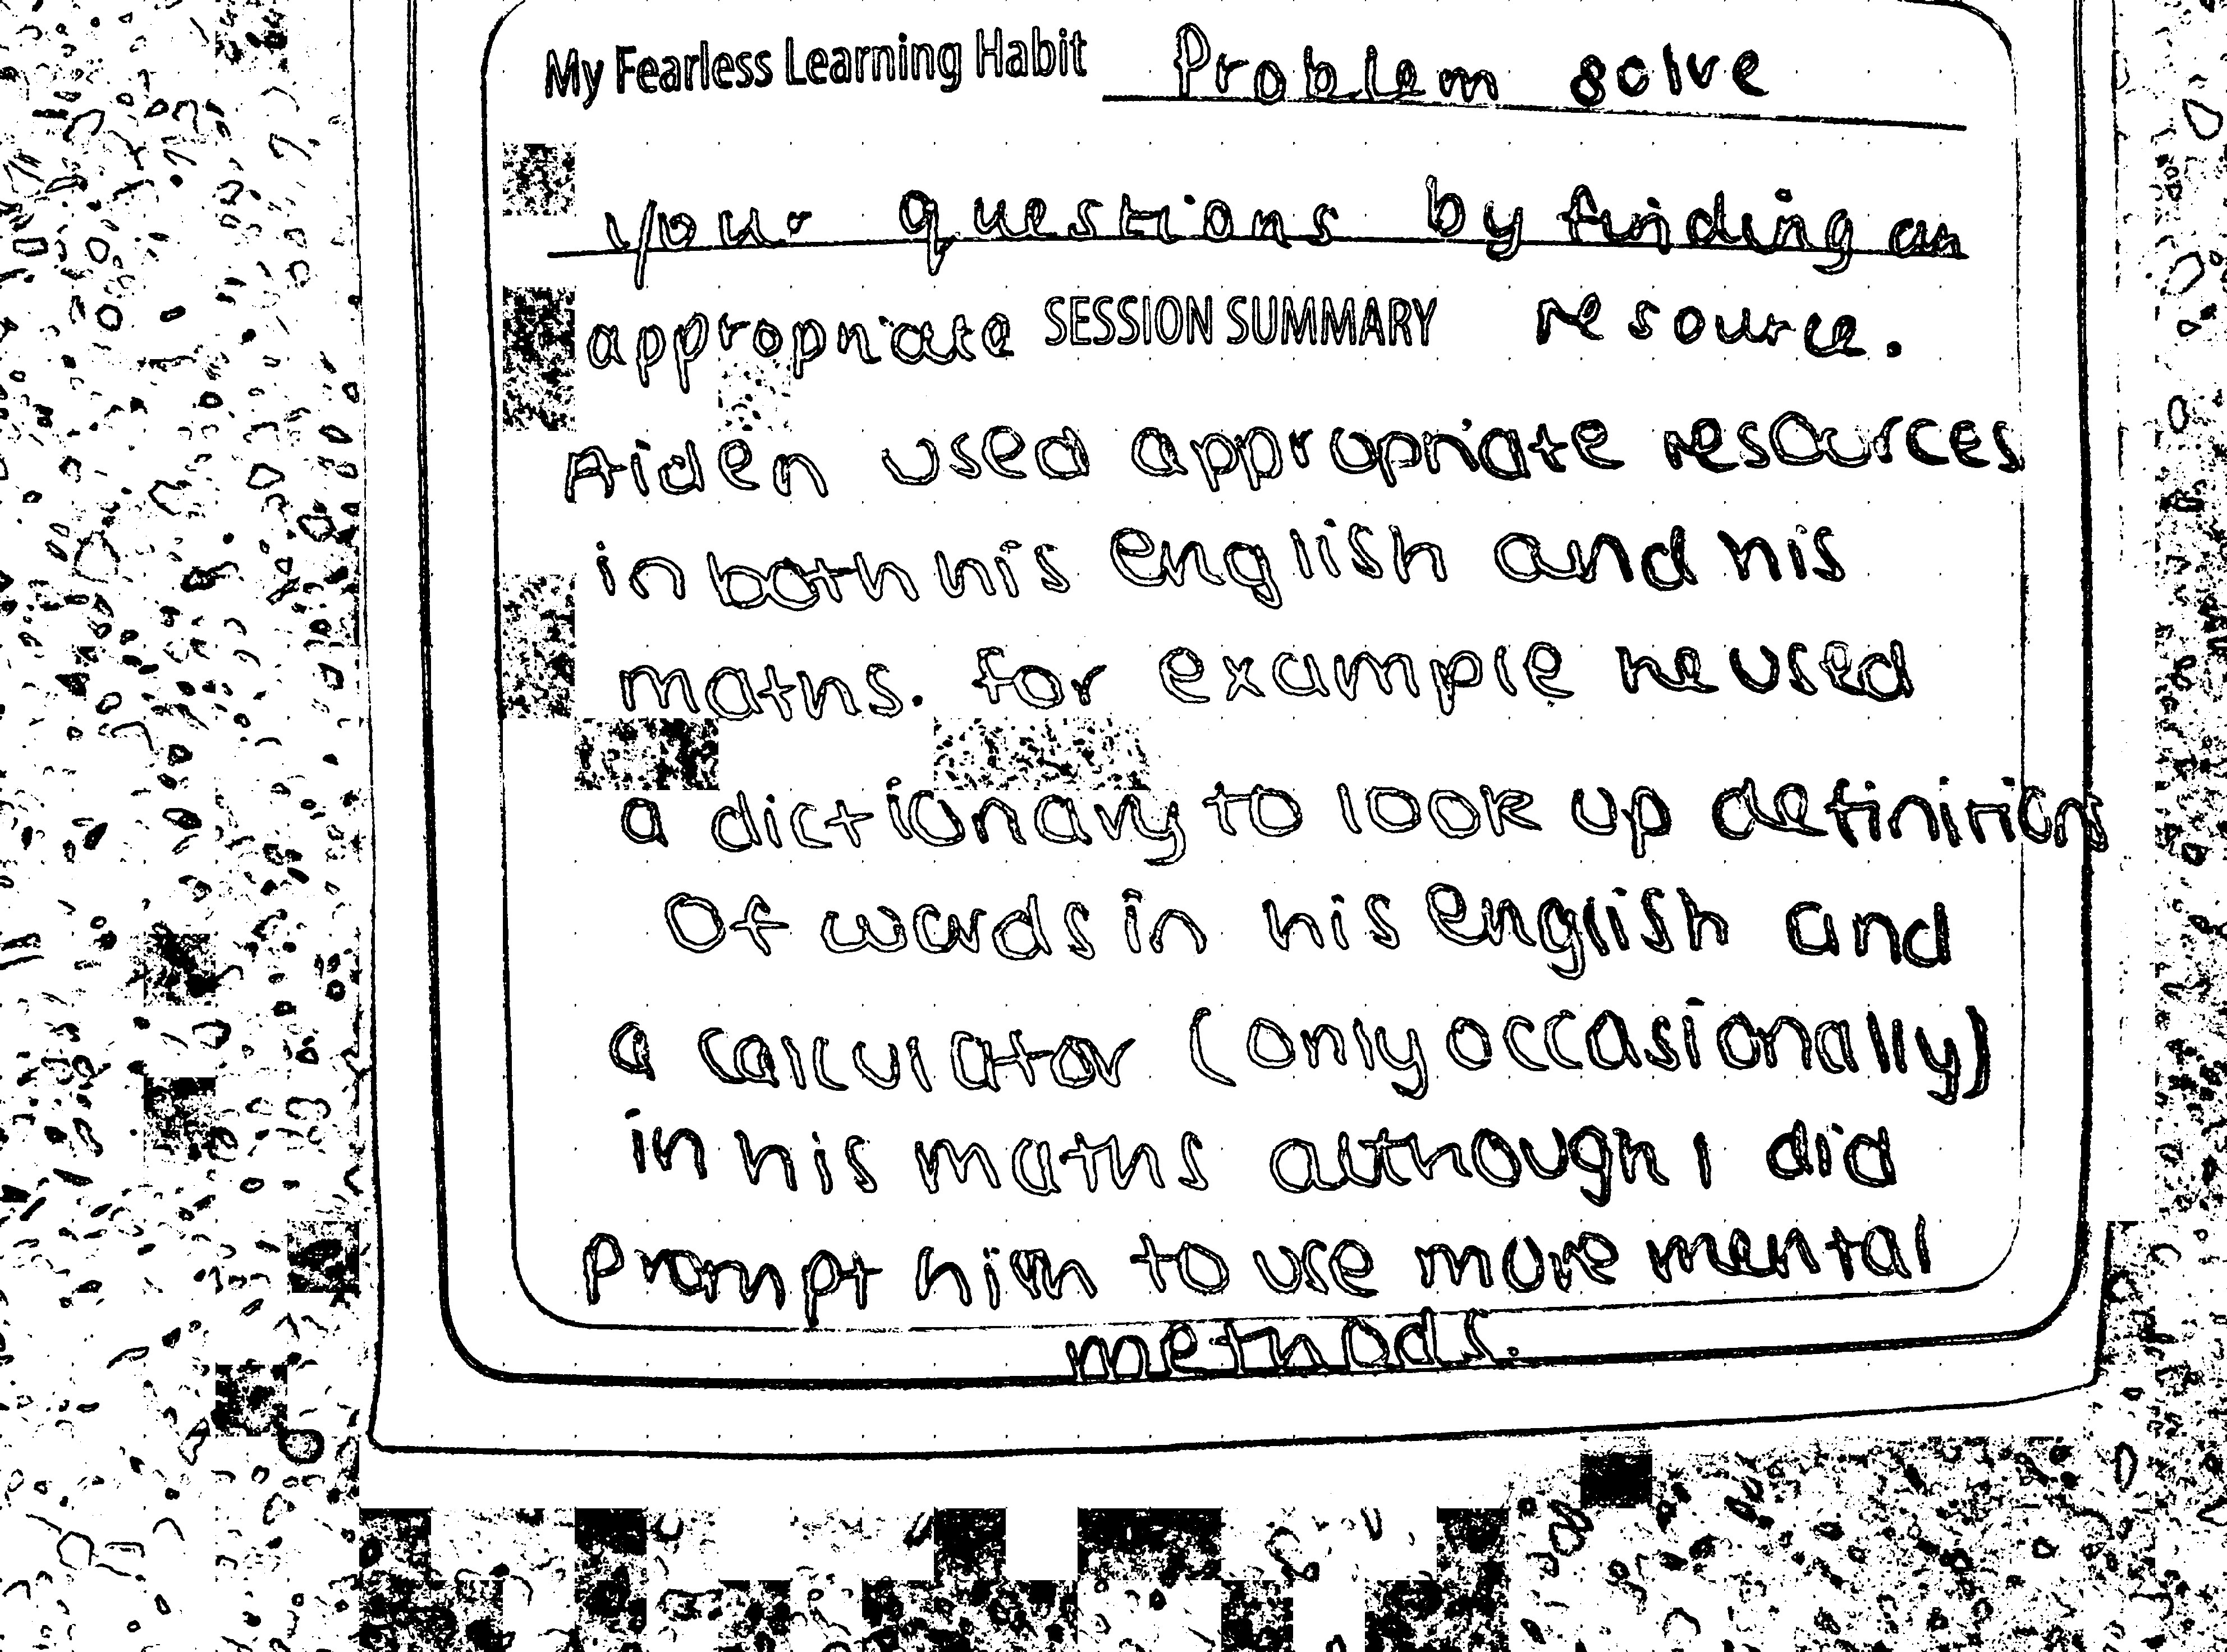 My Fearless Learning Habit Problem solve
your questions by finding an
appropriate SESSION SUMMARY resource.
Aiden used appropriate resources
in both his english and his
maths. for example he used
a dictionary to look up definitions
of words in his english and
a calculator (only occasionally)
in his maths although I did
prompt him to use more mental
methods.